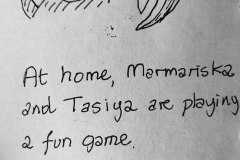 At home, Marmariska
and Tasiya are playing
a fun game.